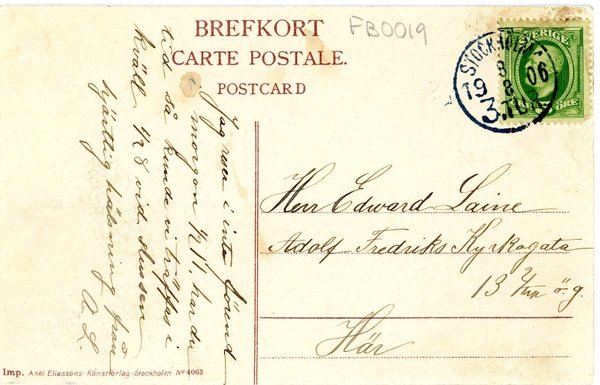 BREFKORT
CARTE POSTALE.
POSTCARD
FB0019
SVERIGE
ÖRE
STOCKHOLM
8
19 8 06
3.TUR
Jag reser i inte
morgon 1/2 11. har du
tid så kunde vi träffas i
kväll 1/2 8 vid slussen
hjärtlig hälsning från
A. L.
Herr Edward Laine
Adolf Fredriks Kyrkogata
13 ö. g.
Här
Imp. Axel Eliassons Konstförlag Stockholm No 4063